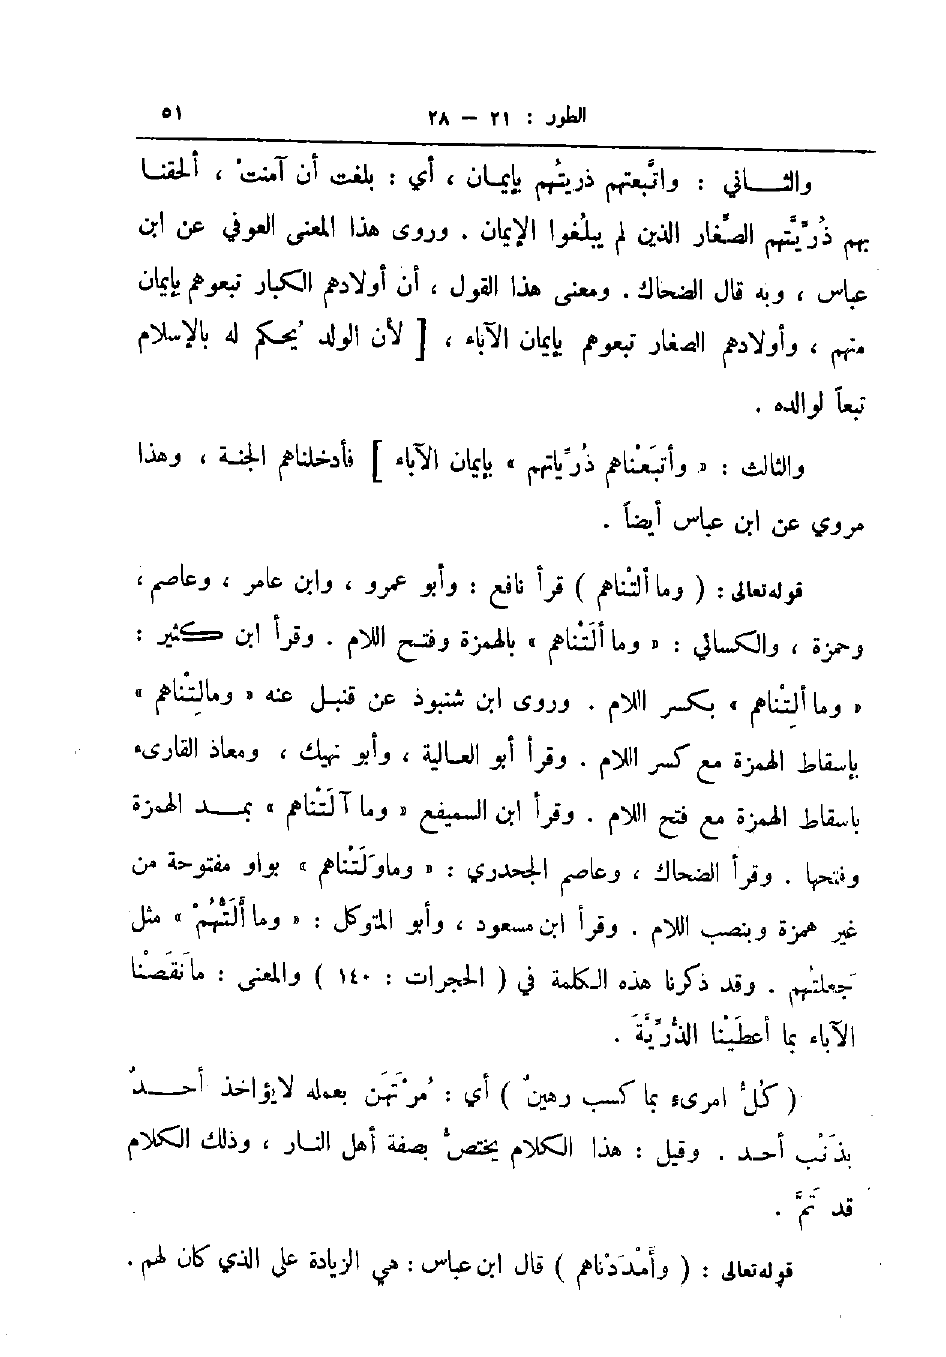 الطور : ٢١ — ٢٨ ٥١
والثـــاني : واتَّبعتهم ذريتُهم بإيمـان ، أي : بلغت أن آمنتْ ، ألحقنـا
بهم ذُرِّيَّتهم الصِّغار الذين لم يبلُغوا الإيمان . وروى هذا المعنى العوفي عن ابن
عباس ، وبه قال الضحاك . ومعنى هذا القول ، أن أولادهم الكبار تبعوهم بإيمان
منهم ، وأولادهم الصغار تبعوهم بإيمان الآباء ، [ لأن الولد يُحـكم له بالإسلام
تبعاً لوالده .
والثالث : « وأتبَعْناهم ذُرِّياتهم » بإيمان الآباء ] فأدخلناهم الجنـة ، وهذا
مروي عن ابن عباس أيضاً .
قوله تعالى : ( وما ألتْناهم ) قرأ نافع : وأبو عمرو ، وابن عامر ، وعاصم ،
وحمزة ، والكسائي : « وما ألَتْناهم » بالهمزة وفتـح اللام . وقرأ ابن كثير :
« وما ألِتْناهم » بكـسر اللام . وروى ابن شنبوذ عن قنبـل عنه « ومالِتْناهم »
بإسقاط الهمزة مع كسر اللام . وقرأ أبو العـالية ، وأبو نهيك ، ومعاذ القارىء
باسقاط الهمزة مع فتح اللام . وقرأ ابن السميفع « وما آلَتْناهم » بمـــد الهمزة
وفتحها . وقرأ الضحاك ، وعاصم الجحدري : « وماوَلَتْناهم » بواو مفتوحة من
غير همزة وبنصب اللام . وقرأ ابن مسعود ، وأبو المتوكل : « وما أَلَتُّهُمْ » مثل
جَعلتُهم . وقد ذكرنا هذه الكلمة في ( الحجرات : ١٤٠ ) والمعنى : ما نَقَصْنا
الآباء بما أعطَيْنا الذُّرِّيَّةَ .
( كُلُّ امرىء بما كسب رهينٌ ) أي : مُرْتَهَن بعمله لا يؤاخذ أحــدٌ
بذَنْب أحـد . وقيل : هذا الكلام يختصُّ بصفة أهل النـار ، وذلك الكلام
قد تَمَّ .
قوله تعالى : ( وأَمْدَدْناهم ) قال ابن عباس : هي الزيادة على الذي كان لهم .